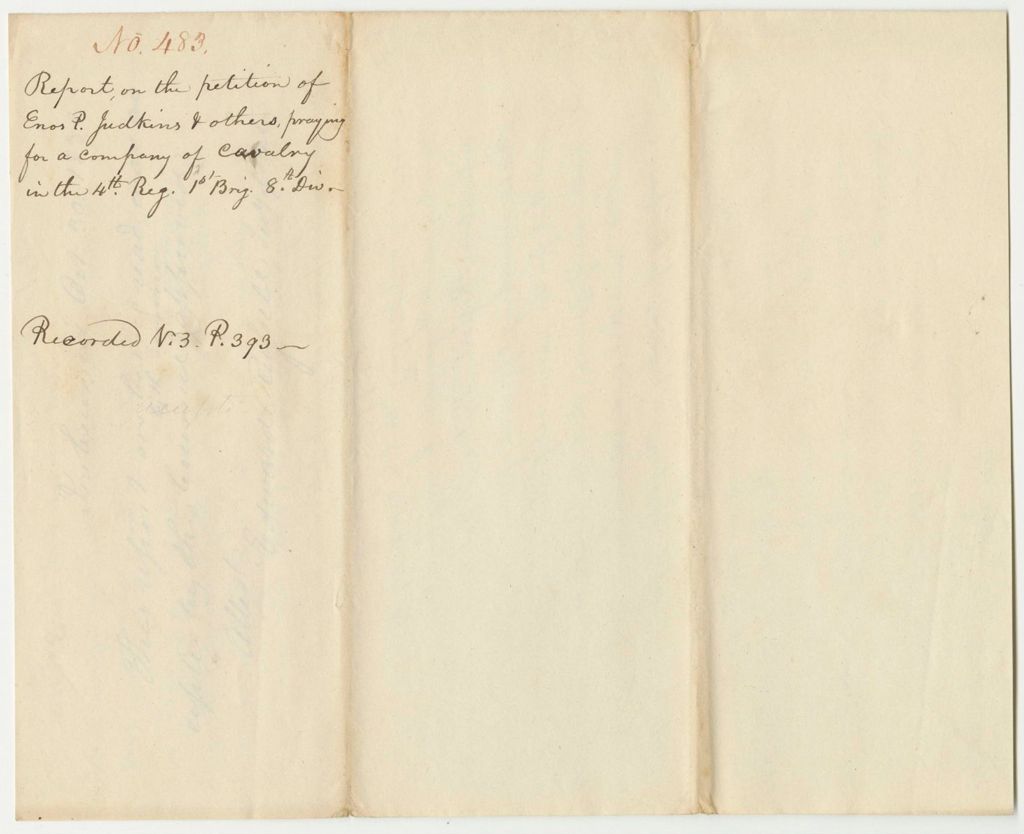 No. 483.
Report, on the petition of
Enos P. Judkins & others, praying
for a company of Cavalry
in the 4th. Reg. 1st Brig. 8.th Div.
Recorded V. 3. P. 393